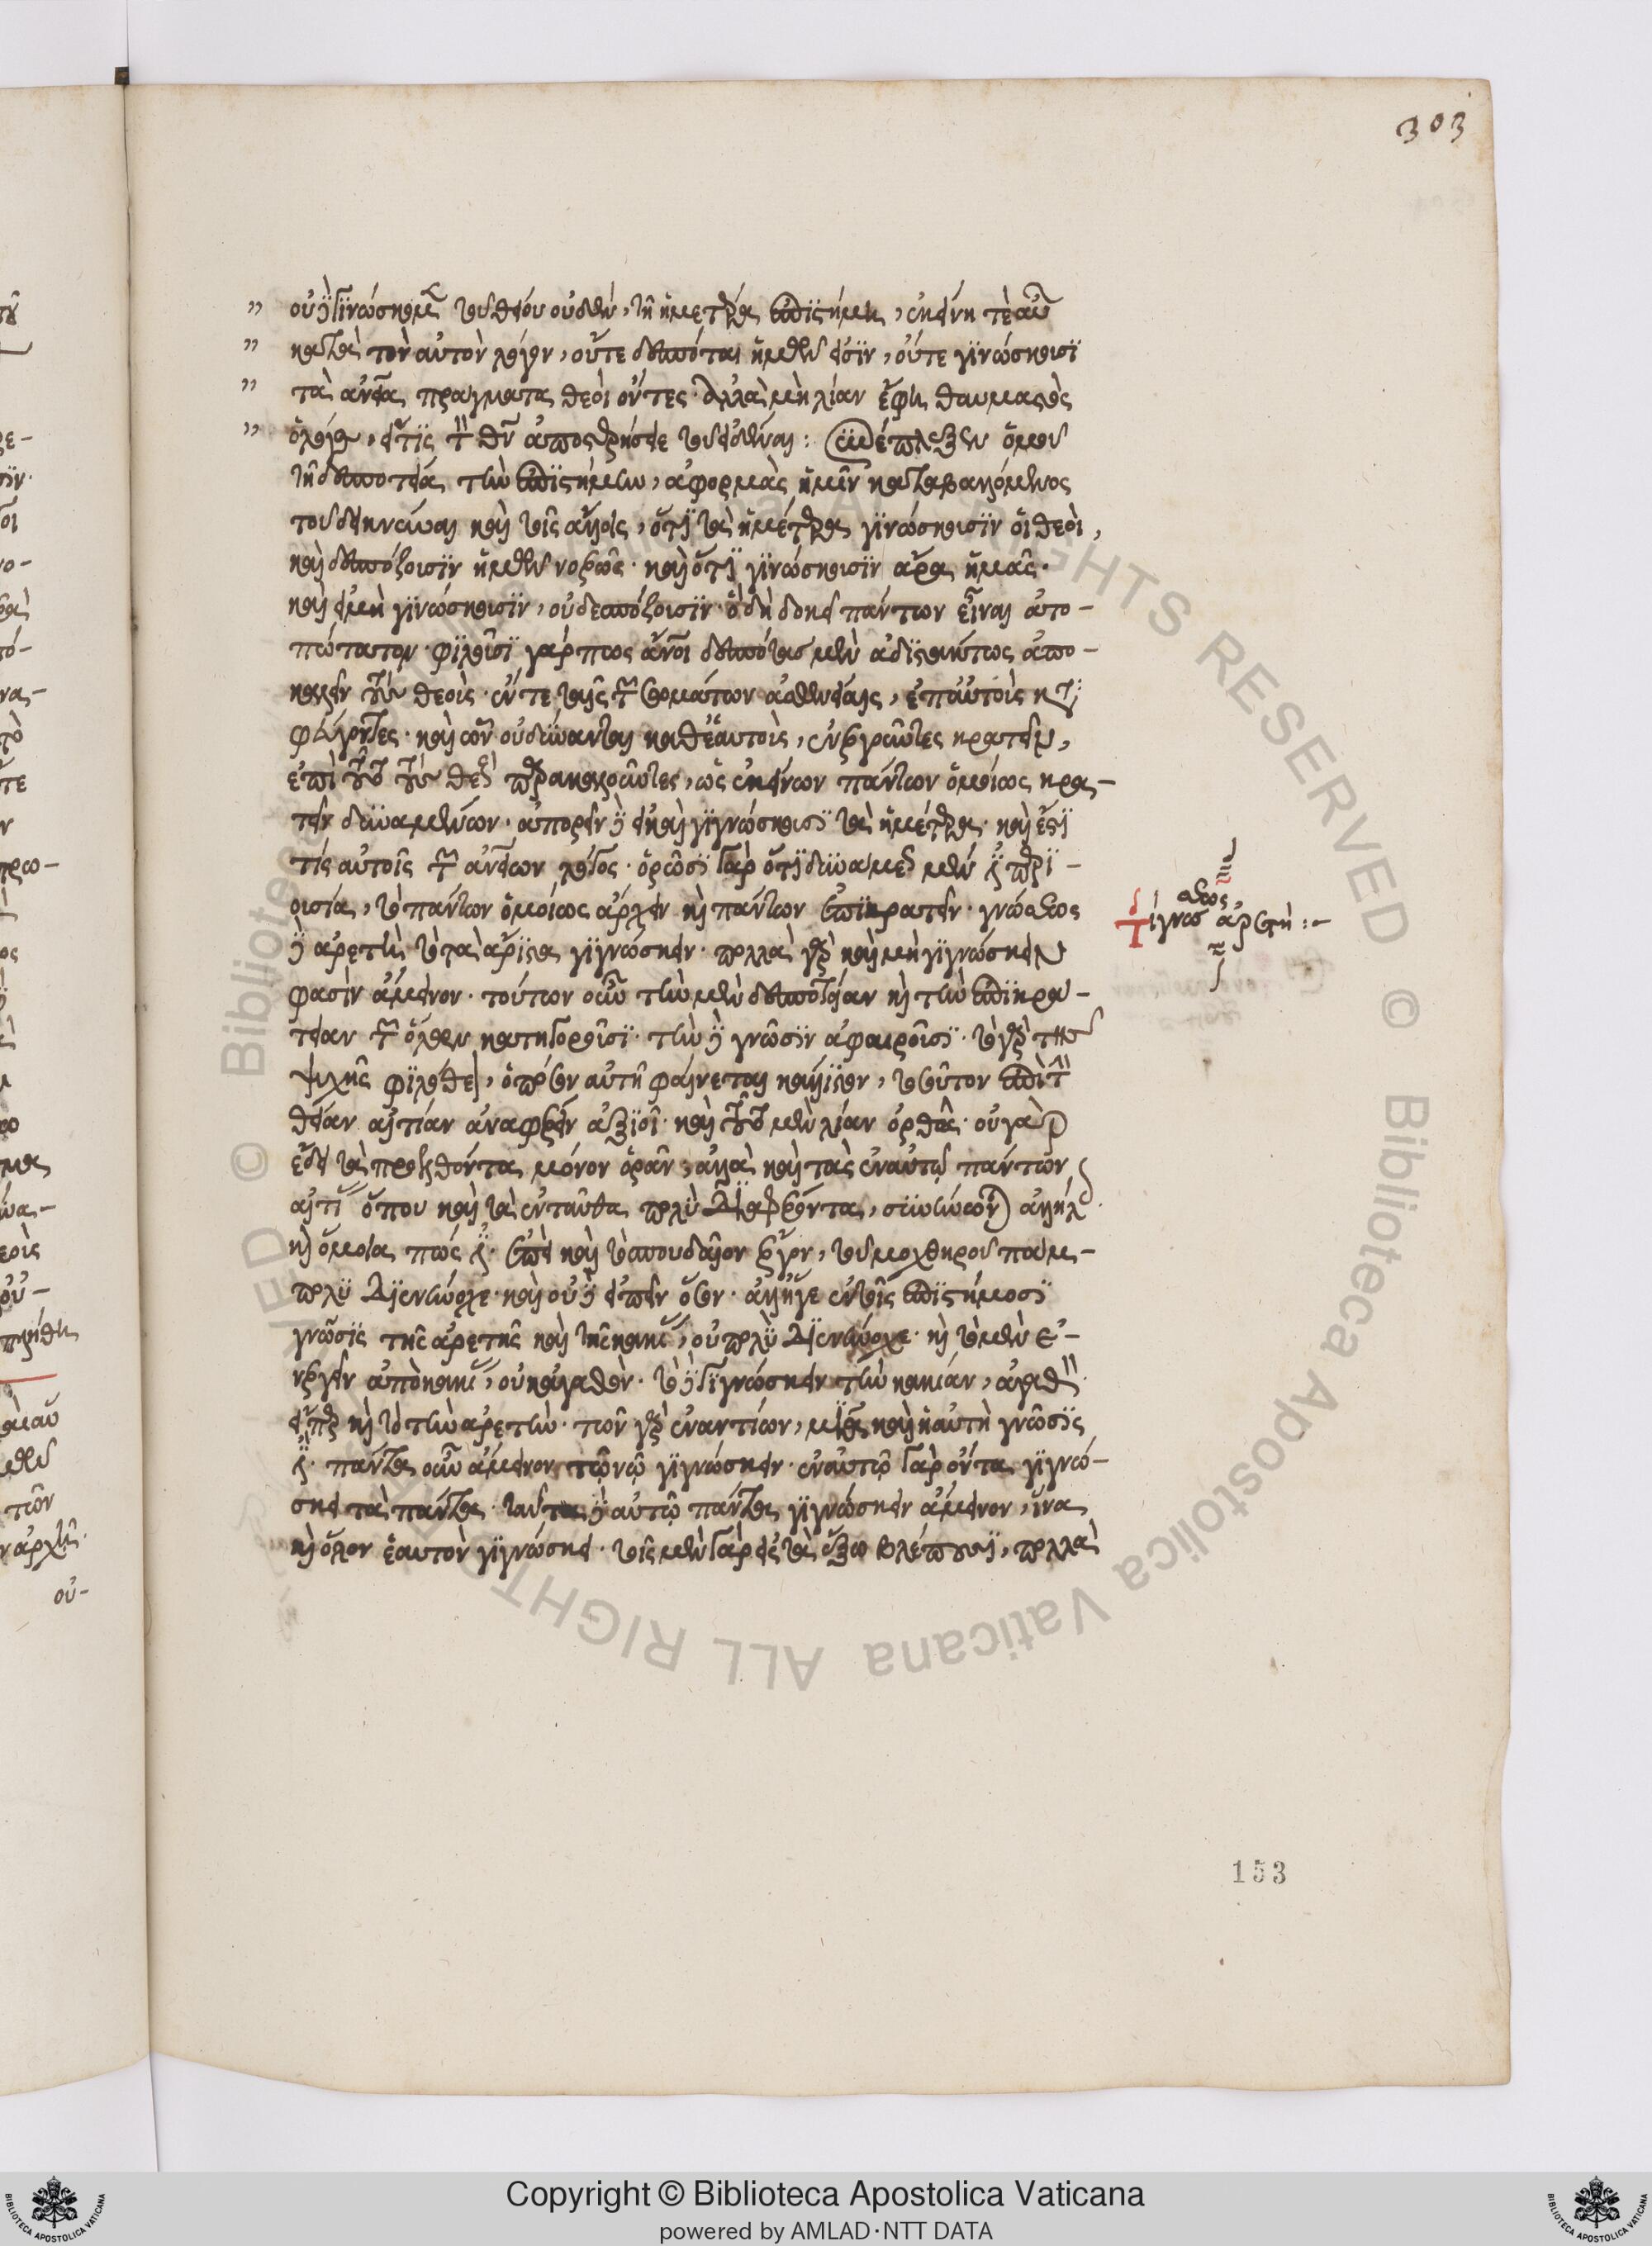 303
οὐδὲ γινώσκομεν τοῦ θείου οὐδὲν, τῇ ἡμετέρᾳ ἐπιστήμῃ, ἐκείνη τὲ αὖ
κατὰ τὸν αὐτὸν λόγον, οὔτε δεσπόται ἡμῶν εἰσὶν, οὔτε γινώσκουσι
τὰ ἀνθρώπεια πράγματα θεοὶ ὄντες. ἀλλὰ μὴ λίαν ἔφη θαυμαστὸς
ὁ λόγος, εἴ τις τὸν θεὸν ἀποστερήσειε τοῦ εἰδέναι: Συνέπλεξεν ὁμοῦ
τῇ δεσποτείᾳ τὴν ἐπιστήμην, ἀφορμὰς ἡμῖν καταβαλλόμενος
τοῦ δεικνύναι καὶ τοῖς ἄλλοις, ὅτι τὰ ἡμέτερα γινώσκουσιν οἱ θεοὶ,
καὶ δεσπόζουσιν ἡμῶν νοερῶς. καὶ ὅτι γινώσκουσιν ἄρα ἡμᾶς.
καὶ εἰ μὴ γινώσκουσιν, οὐ δεσπόζουσιν. ὃ δὴ δοκεῖ πάντων εἶναι ἀτο-
πώτατον. φιλοῦσι γάρ πως ἄνθρωποι δεσπότας μὲν ἀδιστάκτως ἀπο-
καλεῖν τοὺς θεοὺς. ἔν τε ταῖς τῶν σωμάτων ἀσθενείαις, ἐπ' αὐτοὺς κατα
φεύγοντες. καὶ ὧν οὐ δύνανται καθ' ἑαυτοὺς, ἐνεργοῦντες κρατεῖν,
ἐπὶ τούτων τοὺς θεοὺς παρακαλοῦντες, ὡς ἐκείνων πάντων ὁμοίως κρα-
τεῖν δυναμένων. ἀπορεῖν δὲ εἰ καὶ γιγνώσκουσι τὰ ἡμέτερα. καὶ ἔστι
τίς αὐτοῖς τῶν ἀνθρωπείων λόγος. ὁρῶσι γὰρ ὅτι δυνάμεως μέν ἐστι περι-
ουσία, τὸ πάντων ὁμοίως ἄρχειν καὶ πάντων ἐπικρατεῖν. γνώσεως
δὲ ἀρετὴ τὸ τὰ ἄριστα γιγνώσκειν. πολλὰ γὰρ καὶ μὴ γιγνώσκειν
φασὶν ἄμεινον. τούτων οὖν τὴν μὲν δεσποτείαν καὶ τὴν ἐπικρά-
τειαν τῶν ὅλων κατηγοροῦσι. τὴν δὲ γνῶσιν ἀφαιροῦσι. τὸ γὰρ τῆς
ψυχῆς φιλόθεον, ὅπερ ἂν αὐτῇ φαίνεται κάλλιστον, τοῦτον ἐπὶ τὴν
θείαν αἰτίαν ἀναφέρειν ἀξιοῖ. καὶ τοῦτο μὲν λίαν ὀρθῶς. οὐ γὰρ
ἔδει τὰ προελθόντα μόνον ὁρᾶν, ἀλλὰ καὶ τὰς ἐν αὐτῷ πάντων
αἰτίας ὅπου καὶ τὰ ἐνταῦθα πολὺ διαφέροντα, ἀλλήλοις
καὶ ὅμοια πώς ἐστι. ἐπεὶ καὶ τὸ σπουδαῖον ἔργον, τοῦ μοχθηροῦ παμ-
πολὺ διενήνοχε. καὶ οὐδὲ εἰπεῖν ὅσον. ἀλλ' ἥγε ἐν τοῖς ἐπιστήμοσι
γνῶσις τῆς ἀρετῆς καὶ τῆς κακίας, οὐ πολὺ διενήνοχε. καὶ τὸ μὲν ἐ-
νεργεῖν ἀπὸ κακίας, οὐκ ἀγαθόν. τὸ δὲ γιγνώσκειν τὴν κακίαν, ἀγαθὸν.
εἴπερ καὶ τὸ τὴν ἀρετὴν. τῶν γὰρ ἐναντίων, μία καὶ ἡ αὐτὴ γνῶσις
ἐστι. πάντα οὖν ἄμεινον τῷ νῷ γιγνώσκειν. ἐν αὐτῷ γὰρ ὄντα γιγνώ-
σκει τὰ πάντα. δὲ αὐτῷ πάντα γιγνώσκειν ἄμεινον, ἵνα
καὶ ὅλον ἑαυτὸν γιγνώσκει. τοῖς μὲν γὰρ εἰς τὰ ἔξω βλέπουσι, πολλὰ
τί γνώσεως ἀρετή:-
153
Copyright © Biblioteca Apostolica Vaticana
powered by AMLAD·NTT DATA